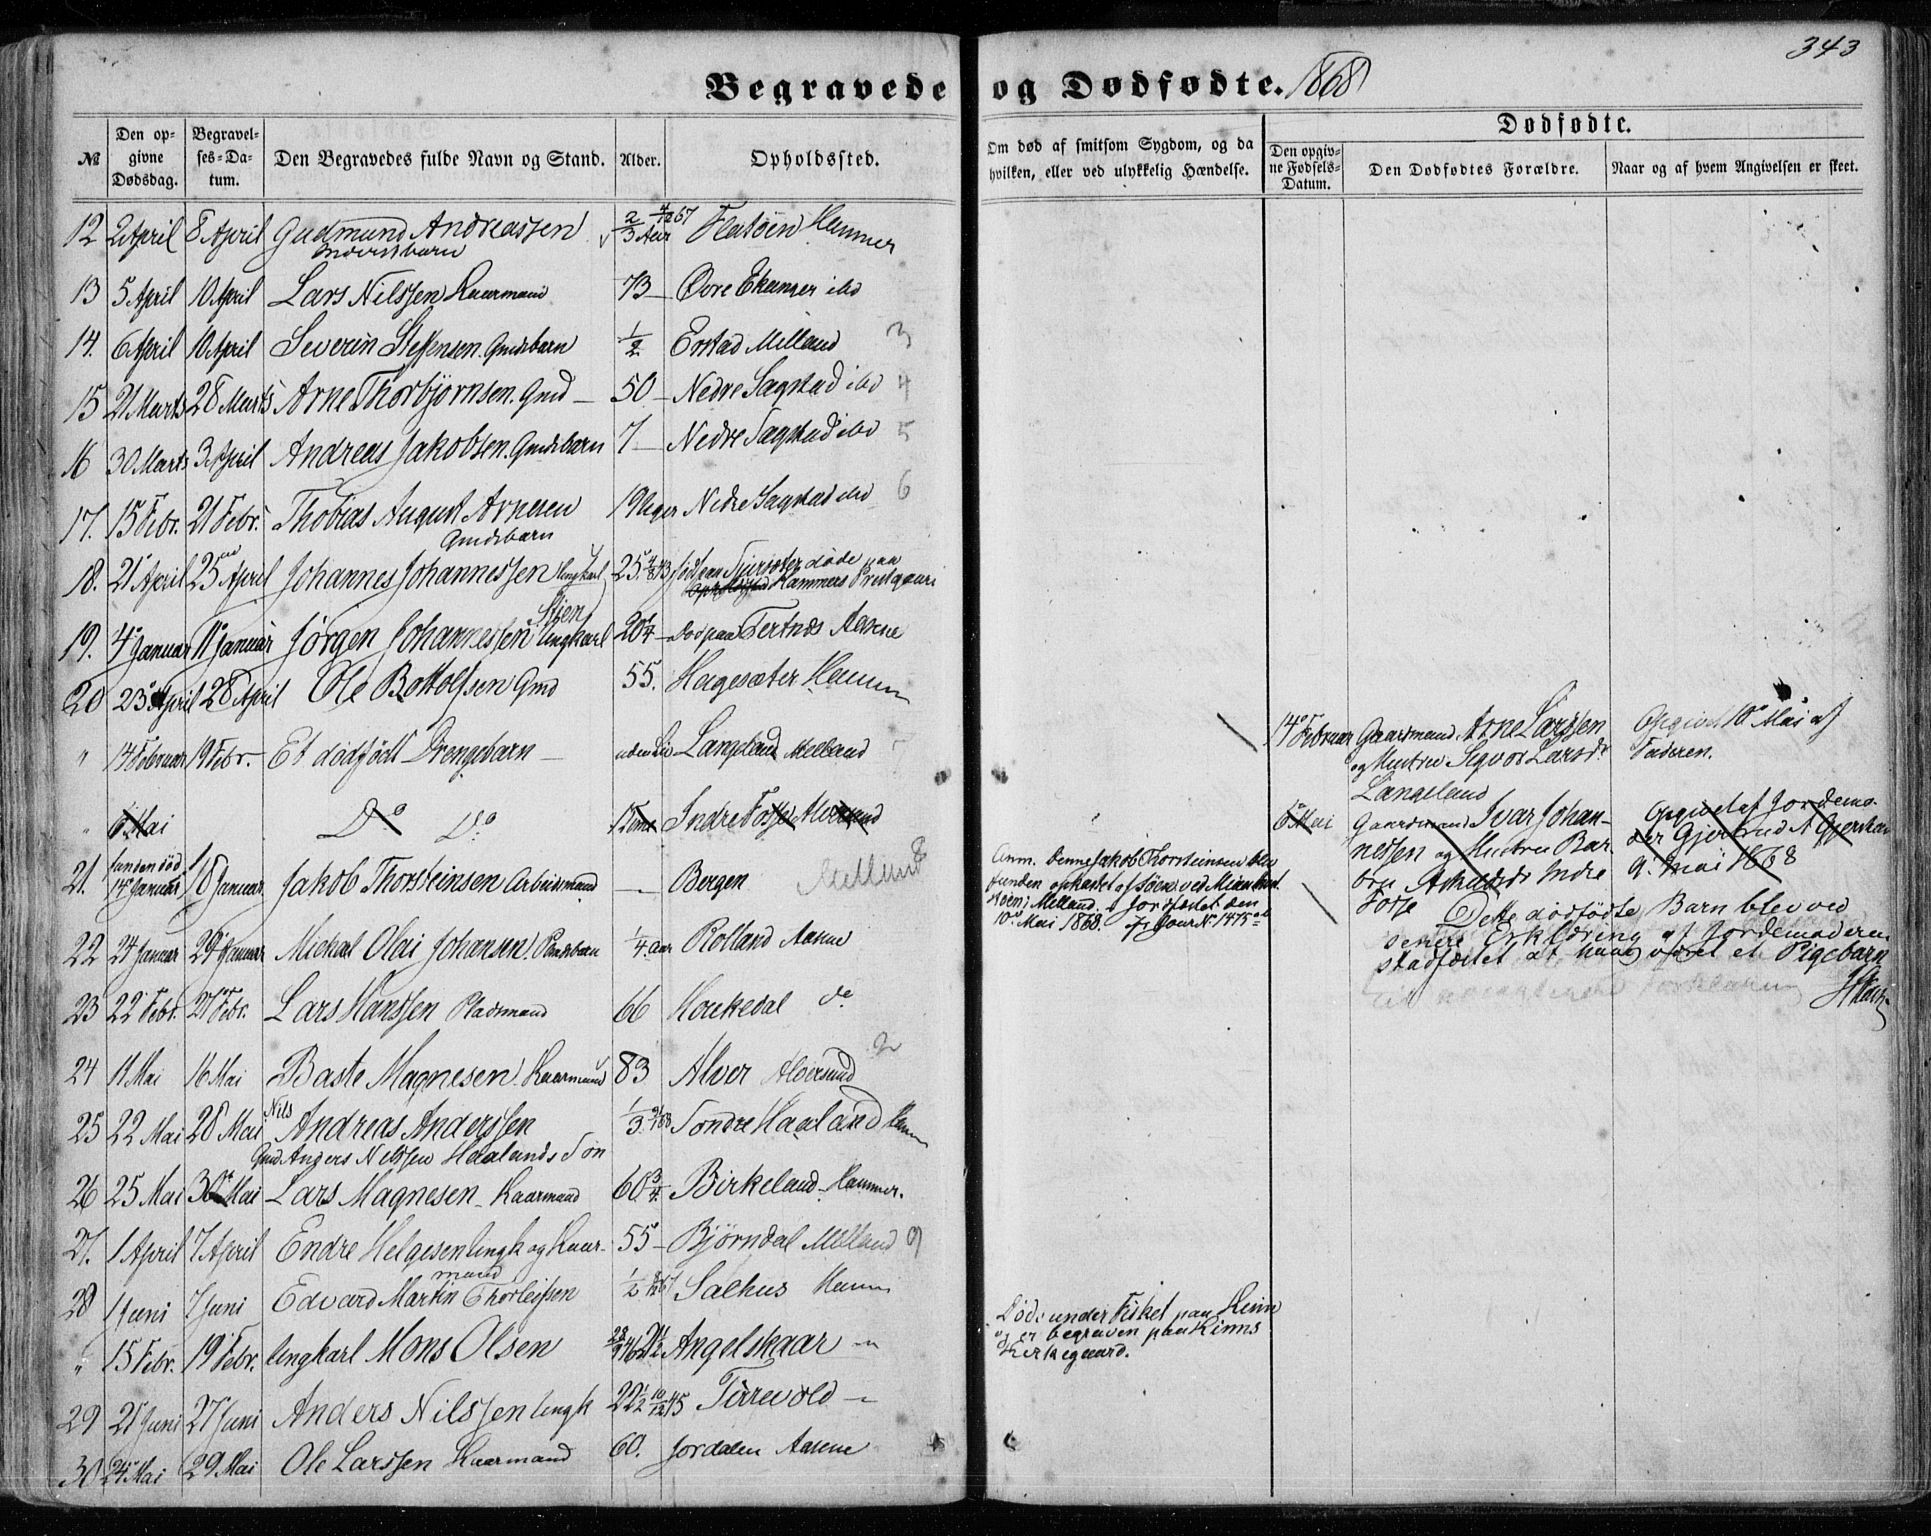 343
Begravede og Dødfødte. 1868
Dødfødte.
№
Den opgivne Dødsdag.
Begravelses-Datum.
Den Begravedes fulde Navn og Stand.
Alder.
Opholdssted.
Om død af smitsom Sygdom, og da hvilken, eller ved ulykkelig Hændelse.
Den opgivne Fødsels-Datum.
Den Dødfødtes Forældre.
Naar og af hvem Angivelsen er skeet.
12 2 April 8 April Gudmund Andreassen 2/3 Aar 67 Flatøen Hammer
13 5 April 10 April Lars Nilssen Kaarmand 73 — Øvre Ekanger ibd
14. 6 April 10 April Severin Steffensen. Gmdsbarn 1/2 Erstad Melland 3
15 21 Marts 28 Marts Arne Thorbjørnsen. Gmd — 50 — Nedre Sagstad ibd 4
16 30 Marts 3 April Andreas Jakobsen. Gmdsbarn 7 — Nedre Sagstad ibd 5
17. 15 Febr. 21 Febr. Thobias August Arnesen 19 Uger Nedre Sagstad ibd 6
Gmdsbarn
18. 21 April 25 April Johannes Johannessen Ungkarl 25. født paa døde paa
Hammers Prestgaard
Stien
19. 4 Januar 11 Januar Jørgen Johannessen Ungkarl 20 1/4 — død paa Tertnæs Aasene
20 23 April 28 April Ole Bottolfsen Gmd 55. Hagesæter Hamm
" 14 Februar 19 Febr. — Et dødfødt Drengebarn — uden Liv Langeland Melland 7
14 Februar Gaardmand Arne Larssen
og Hustru Larsdr
Langeland
Opgivet 10 Mai af
Faderen.
" 6 Mai Do Do Indre Fosse Melland
6 Mai Gaardmand Ivar Johannessen og Hustru Indre
Fosse
Opgivet af Jordemoder Gjertrud
9. Mai 1868
Dette dødfødte Barn blev ved
senere Erklæring af Jordemoderen
stadfæstet at have været et Pigebarn
21. funden død
14 Januar 18 Januar. Jakob Thorsteinsen Arbeidsmand — Bergen Melland 8
Anm. Denne Jakob Thorsteinsen blev
funden opkastet af Søen ved
i Melland. Jordfæstet den
10. Mai 1868. Jour No 1475
22 24 Januar 29 Januar Mickal Olai Johansen. Pladsbarn 1/4 aar Rolland Aasene
23 22 Febr. 27 Febr. Lars Hanssen Pladsmand 66 Houkedal do
24 11 Mai 16 Mai Baste Magnesen. Kaarmand 83 Alver Alversund 2
Nils
25 22 Mai 28 Mai Andreas Anderssen 1/3 Søndre Haaland Hamm
Gmd Anders Nilssen Haalands Søn
26 25 Mai 30 Mai Lars Magnesen — Kaarmand 60 3/4 Birkeland — Hammer.
27. 1 April 7 April Endre Helgesen Ungk og Kaarmand 55 — Bjørndal Melland 9
28 1 Juni 7 Juni Edvard Martin Thorleifsen 1/2 67 Salhus Hamm
" 15 Febr. 19 Febr. Ungkarl Mons Olsen 21 1/2 Angelskaar —"—
Døde under Fisket paa Kinn
og er begraven paa Kinns
Kirkegaard.
29 21 Juni 27 Juni Anders Nilssen Ungk 22 1/2 10/12 45 Tirrevold —"—
30 24 Mai 29 Mai Ole Larssen Kaarmand 60. Jordalen Aasene